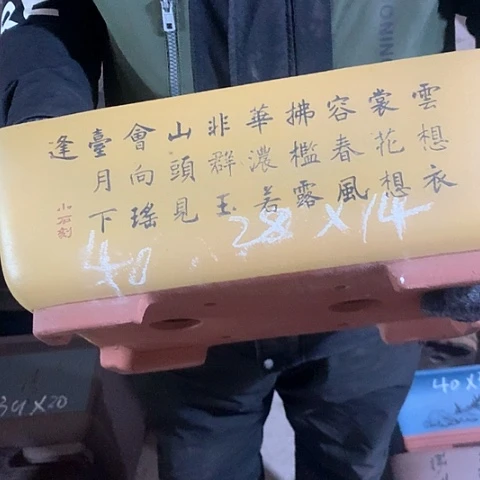 雲想衣
裳花想
容春風
拂檻露
華濃若
非群玉
山頭見
會向瑤
臺月下
逢
小石刻
40 28×14
39×20
40×